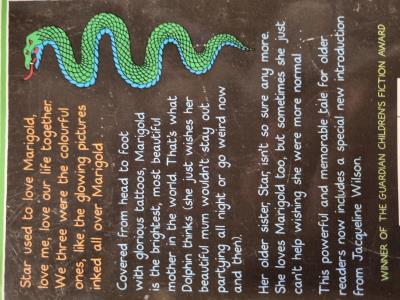 Star used to love Marigold,
love me, love our life together.
We three were the colourful
ones, like the glowing pictures
inked all over Marigold ...
Covered from head to foot
with glorious tattoos, Marigold
is the brightest, most beautiful
mother in the world. That's what
Dolphin thinks (she just wishes her
beautiful mum wouldn't stay out
partying all night or go weird now
and then).
Her older sister, Star, isn't so sure any more.
She loves Marigold too, but sometimes she just
can't help wishing she were more normal ...
This powerful and memorable tale for older
readers now includes a special new introduction
from Jacqueline Wilson.
WINNER OF THE GUARDIAN CHILDREN'S FICTION AWARD